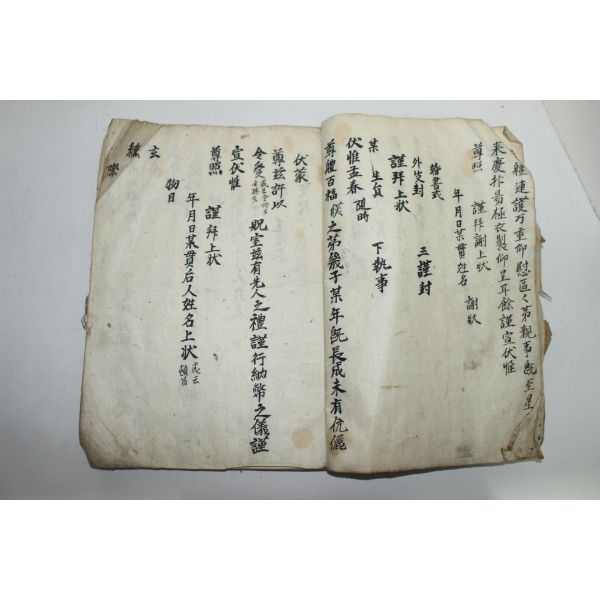 體連護万重仰慰區〻第親事旣至星
來慶抃曷極衣製仰呈耳餘謹宣伏惟
尊照 謹拜謝上狀
年月日某貫姓名 謝狀
婚書式
外皮封 三謹封
謹拜上狀
某 生員 下執事
伏惟孟春 隨時
尊體百福 僕之第幾子某年旣長成未有伉儷
伏蒙
尊玆許以
令愛 貺室玆有先人之禮謹行納幣之儀謹
宣伏惟
尊照 謹拜上狀
年月日某貫后人姓名上狀 或云頓首
物目
玄
纁
際